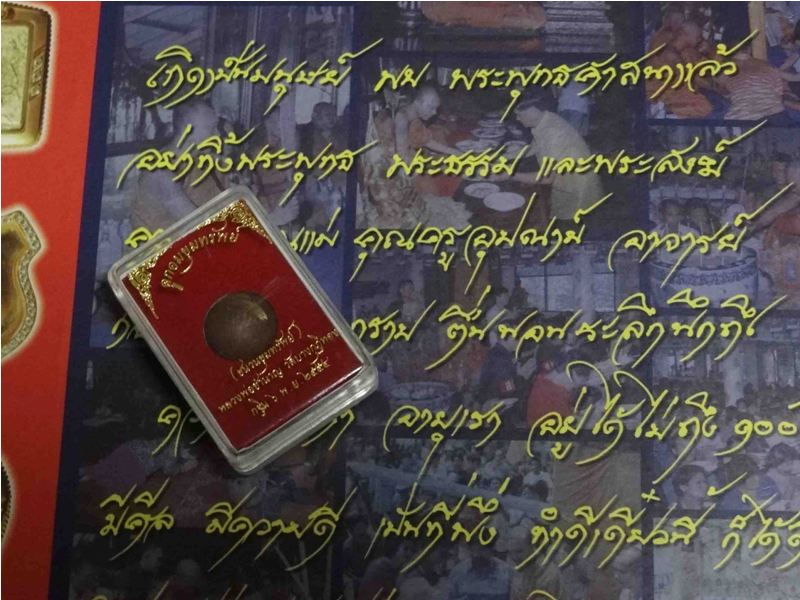 เกิดมาเป็นมนุษย์ พบ พระพุทธศาสนาแล้ว
อย่าทิ้งพระพุทธ พระธรรม และพระสงฆ์
คุณครูอุปัชฌาย์ อาจารย์
ตื่นนอนระลึกนึกถึง
อายุเรา อยู่ได้ไม่ถึง ๑๐๐
มีศีล มีความดี เป็นที่พึ่ง ทำดีเดี๋ยวนี้ ก็ได้ดี
ลูกอมขุมทรัพย์
(ชานขุมทรัพย์)
หลวงพ่อชำนาญ วัดบางกุฎีทอง
กฐิน ๖ พ.ย ๒๕๕๔